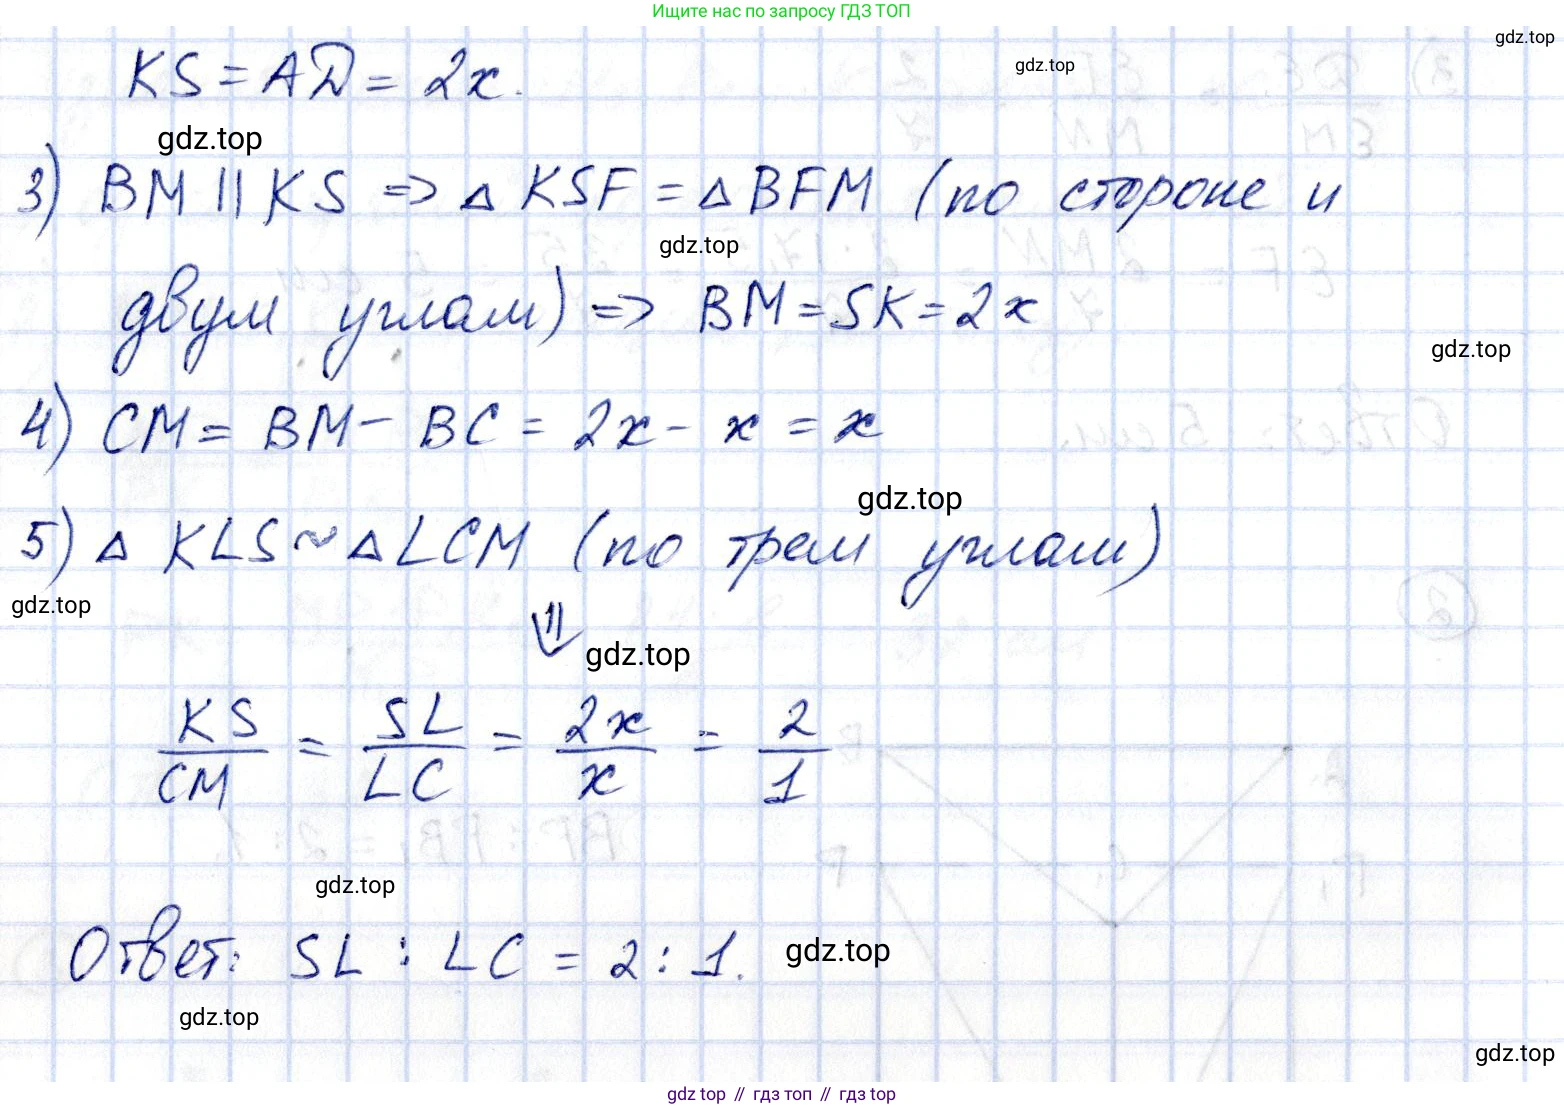 Ищите нас по запросу ГДЗ ТОП
gdz.top
KS = AD = 2x.
gdz.top
gdz.top
3) BM || KS => △ KSF = △ BFM (по стороне и
gdz.top
двум углам) => BM = SK = 2x
gdz.top
4) CM = BM - BC = 2x - x = x
gdz.top
5) △ KLS ~ △ LCM (по трем углам)
gdz.top
⇓
gdz.top
KS/CM = SL/LC = 2x/x = 2/1
gdz.top
Ответ: SL : LC = 2 : 1.
gdz.top
gdz.top
gdz.top
gdz top // гдз топ // gdz top